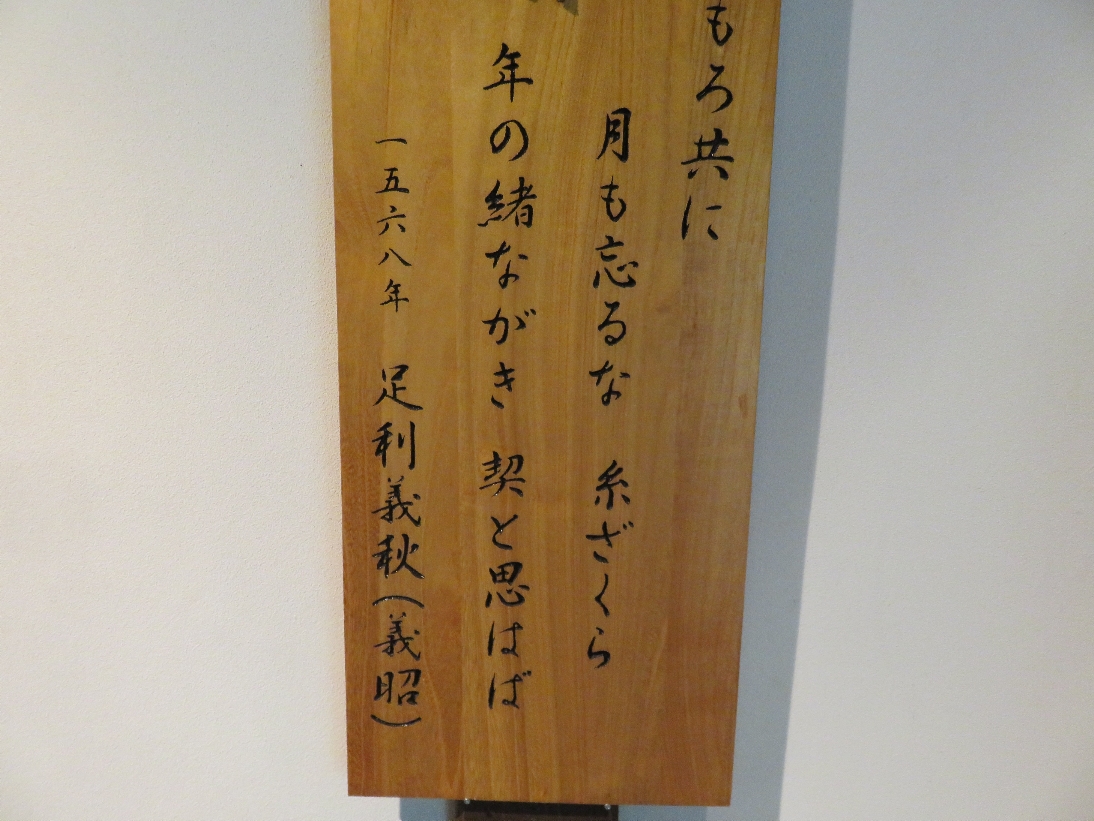 もろ共に
月も忘るな　糸ざくら
年の緒ながき　契と思はば
一五六八年　足利義秋（義昭）